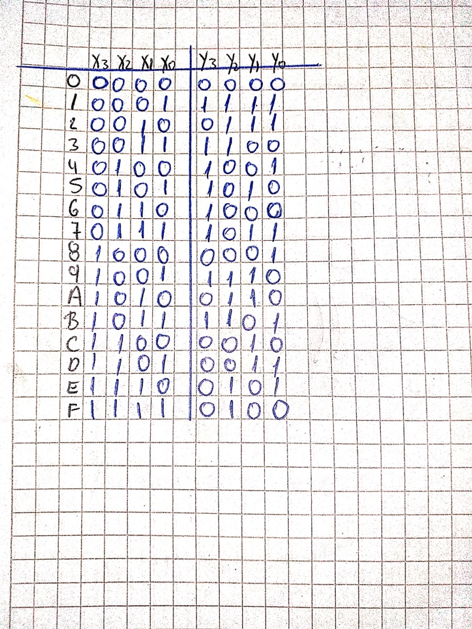 X3 X2 X1 X0 Y3 Y2 Y1 Y0
0 0 0 0 0 0 0 0 0
1 0 0 0 1 1 1 1 1
2 0 0 1 0 0 1 1 1
3 0 0 1 1 1 1 0 0
4 0 1 0 0 1 0 0 1
5 0 1 0 1 1 0 1 0
6 0 1 1 0 1 0 0 0
7 0 1 1 1 1 0 1 1
8 1 0 0 0 0 0 0 1
9 1 0 0 1 1 1 1 0
A 1 0 1 0 0 1 1 0
B 1 0 1 1 1 1 0 1
C 1 1 0 0 0 0 1 0
D 1 1 0 1 0 0 1 1
E 1 1 1 0 0 1 0 1
F 1 1 1 1 0 1 0 0